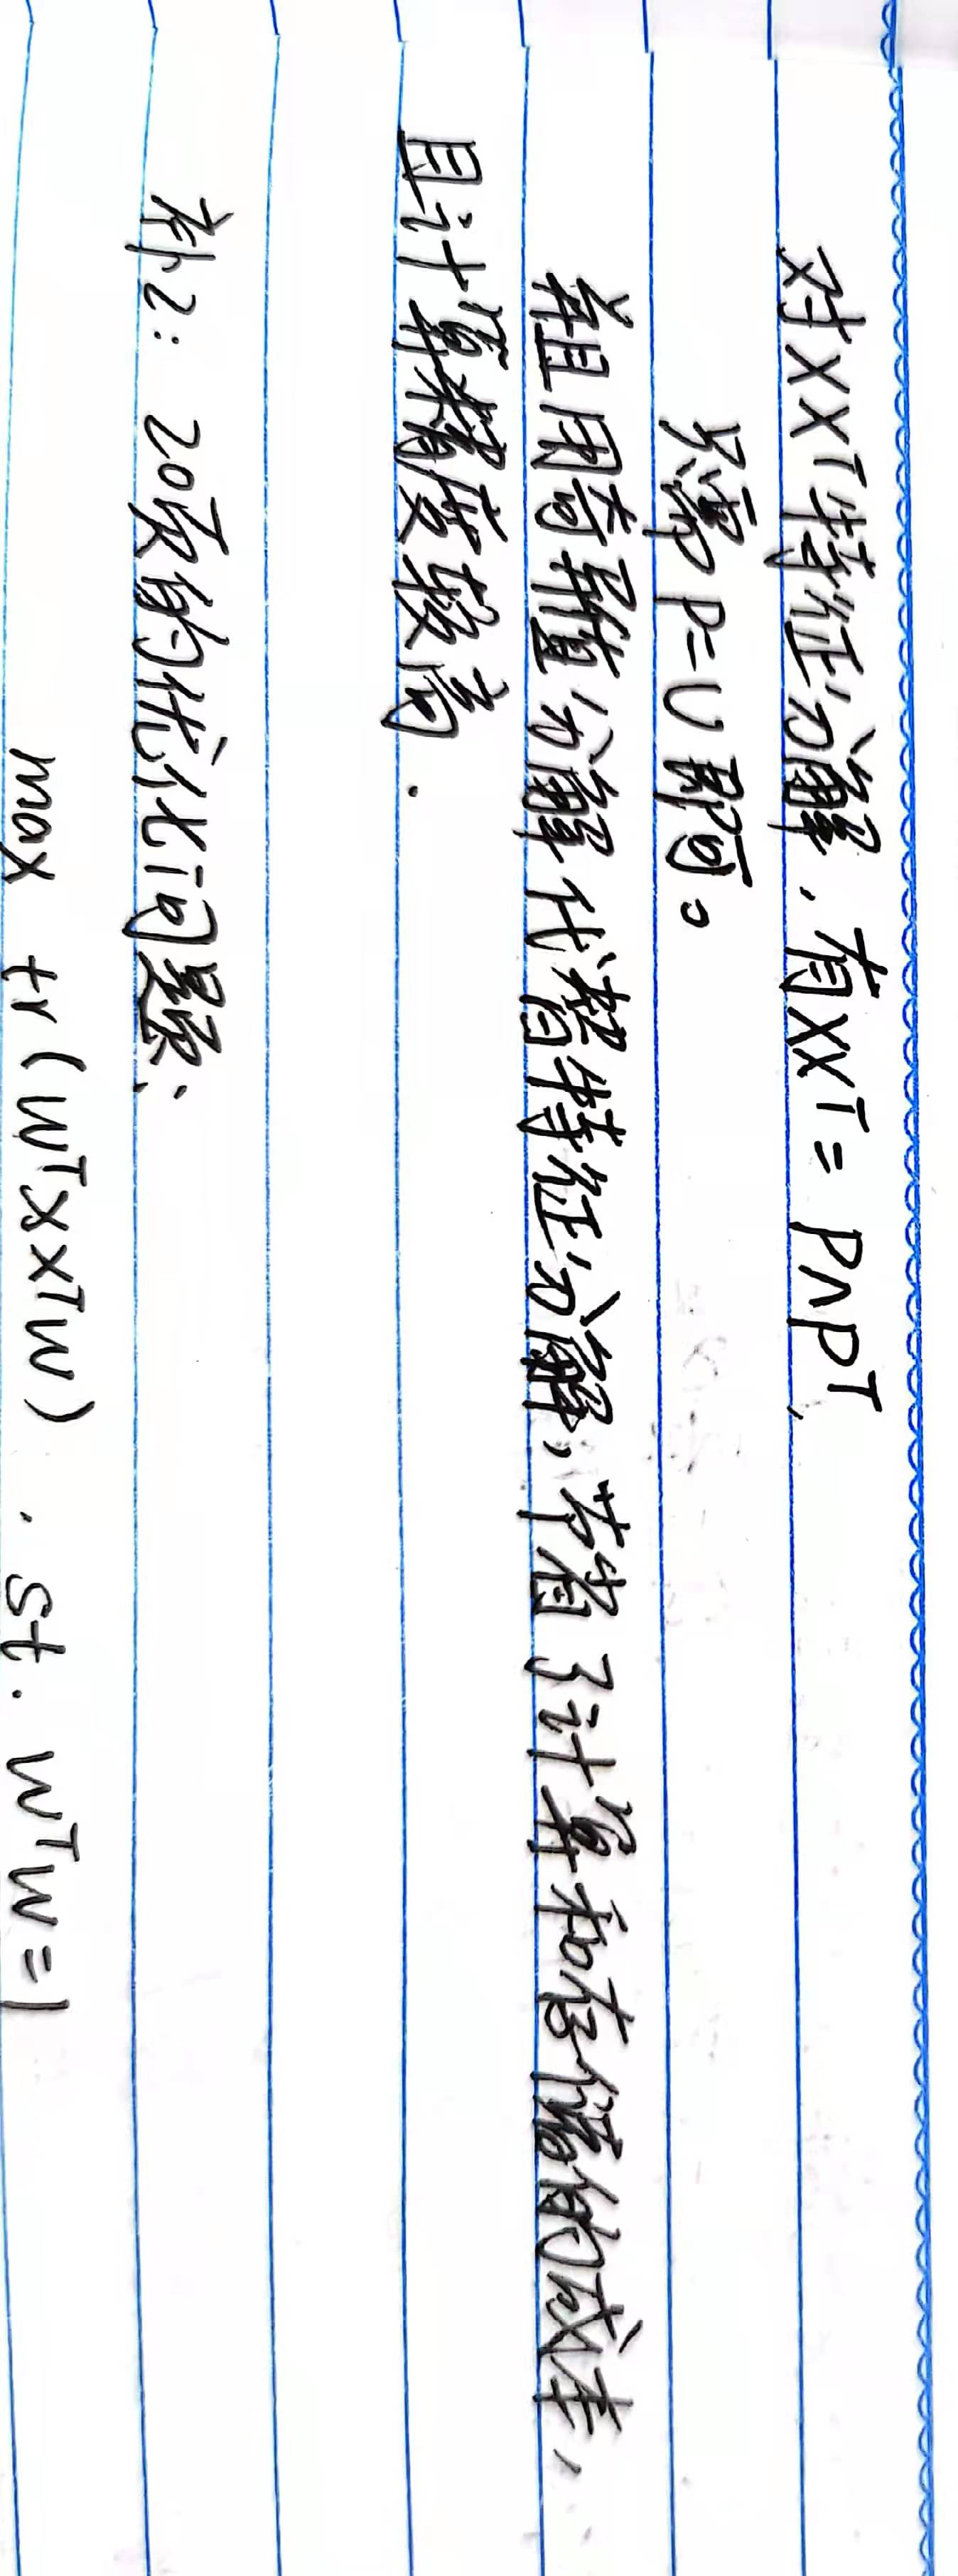 对XXᵀ特征分解,有XXᵀ=PΛPᵀ,
只需P=U即可。
并且用奇异值分解代替特征分解,节省了计算和存储的成本,
且计算精度较高.
补2: 20页的优化问题:
max tr(WᵀXXᵀW). st. WᵀW=1